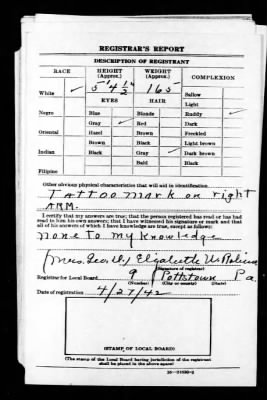 REGISTRAR'S REPORT
DESCRIPTION OF REGISTRANT
RACE HEIGHT (Approx.) WEIGHT (Approx.) COMPLEXION
White ✓ 5' 4 1/2 165 Sallow
EYES HAIR Light
Negro Blue Blonde Ruddy ✓
Gray ✓ Red Dark
Oriental Hazel Brown Freckled
Brown Black Light brown
Indian Black Gray ✓ Dark brown
Bald Black
Filipino
Other obvious physical characteristics that will aid in identification
Tattoo mark on right
ARM.
I certify that my answers are true; that the person registered has read or has had
read to him his own answers; that I have witnessed his signature or mark and that
all of his answers of which I have knowledge are true, except as follows:
None to my knowledge
Mrs. Elizabeth
(Signature of registrar)
Registrar for Local Board 9 Pottstown Pa
(Number) (City or county) (State)
Date of registration 4/27/42
(STAMP OF LOCAL BOARD)
(The stamp of the Local Board having jurisdiction of the registrant
shall be placed in the above space)